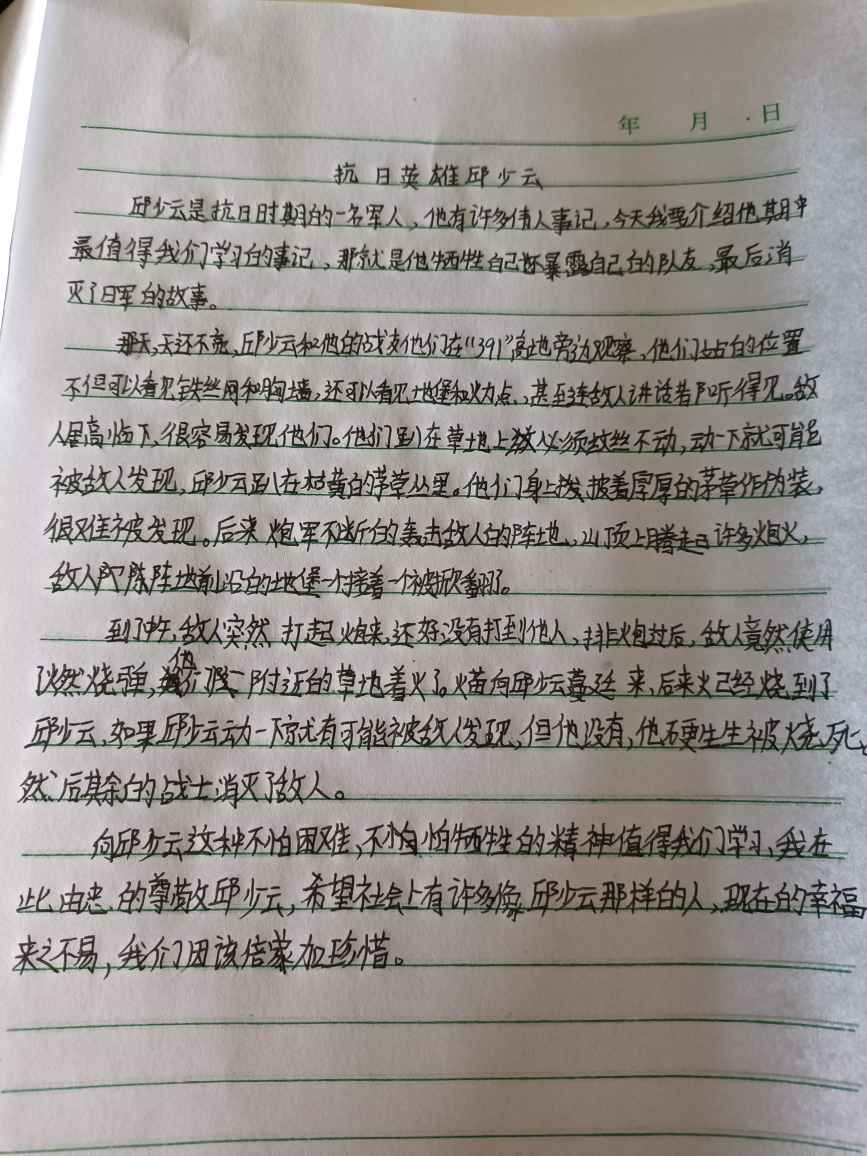 年 月 日
抗日英雄邱少云
邱少云是抗日时期的一名军人，他有许多倩人事记，今天我要介绍他其中
最值得我们学习的事记，那就是他牺牲自己怀暴露自己的队友，最后消
灭了日军的故事。
那天，天还不亮，邱少云和他的战友他们在“391”高地旁边观察，他们占的位置
不但可以看见铁丝网和胸墙，还可以看见地堡和火力点，甚至连敌人讲话都听得见。敌
人居高临下，很容易发现他们。他们趴在草地上必须纹丝不动，动一下就可能
被敌人发现，邱少云趴在枯黄的茅草丛里。他们身上披着厚厚的茅草作伪装，
很难被发现。后来炮军不断的轰击敌人的阵地，山顶上腾起许多炮火，
敌人阵地前沿的地堡一个接着一个被掀翻了。
到了中午，敌人突然打起炮来，还好没有打到他人，排炮过后，敌人竟然使用
了燃烧弹，他们附近的草地着火了。火苗向邱少云蔓延来，后来火已经烧到了
邱少云，如果邱少云动一下就有可能被敌人发现，但他没有，他硬生生被烧死。
然后其余的战士消灭了敌人。
向邱少云这种不怕困难，不怕牺牲的精神值得我们学习，我在
此由忠的尊敬邱少云，希望社会上有许多像邱少云那样的人，现在的幸福
来之不易，我们因该倍加珍惜。